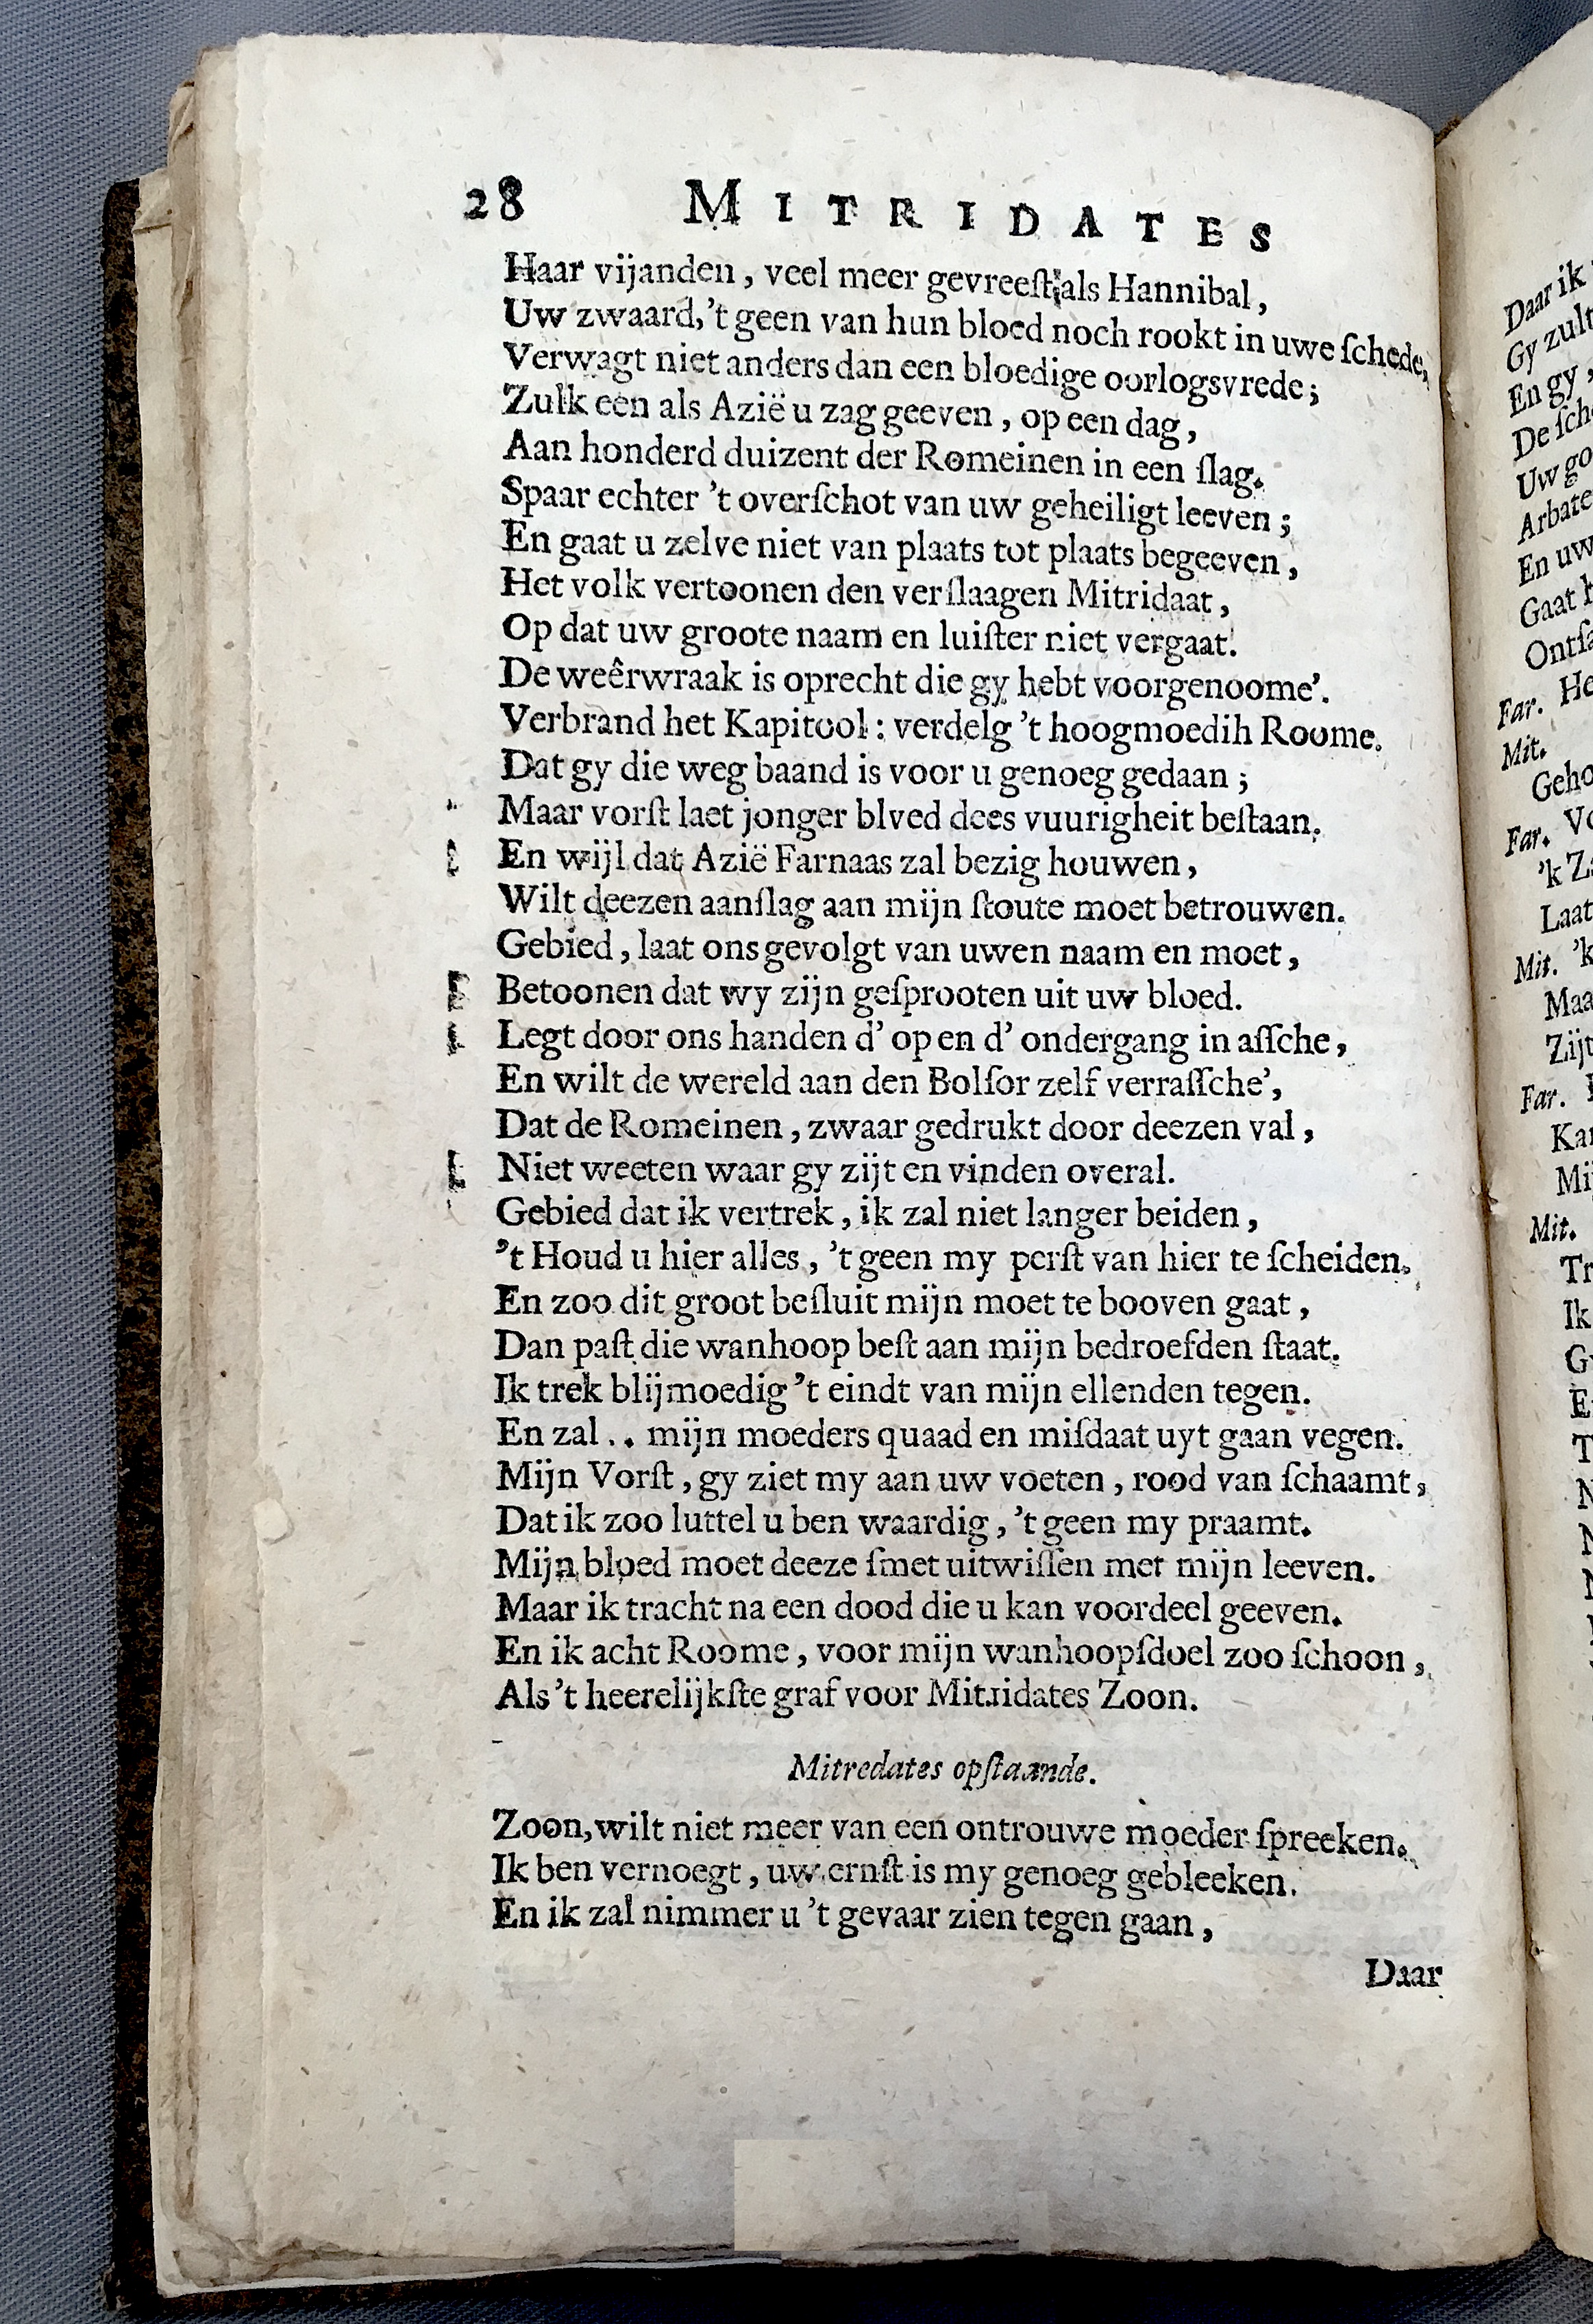 28 MITRIDATES
Haar vijanden, veel meer gevreeſt als Hannibal,
Uw zwaard, 't geen van hun bloed noch rookt in uwe ſchede,
Verwagt niet anders dan een bloedige oorlogsvrede;
Zulk een als Azië u zag geeven, op een dag,
Aan honderd duizent der Romeinen in een ſlag.
Spaar echter 't overſchot van uw geheiligt leeven;
En gaat u zelve niet van plaats tot plaats begeeven,
Het volk vertoonen den verſlaagen Mitridaat,
Op dat uw groote naam en luiſter niet vergaat.
De weêrwraak is oprecht die gy hebt voorgenoome'.
Verbrand het Kapitool: verdelg 't hoogmoedih Roome.
Dat gy die weg baand is voor u genoeg gedaan;
Maar vorſt laet jonger blved dees vuurigheit beſtaan.
En wijl dat Azië Farnaas zal bezig houwen,
Wilt deezen aanſlag aan mijn ſtoute moet betrouwen.
Gebied, laat ons gevolgt van uwen naam en moet,
Betoonen dat wy zijn geſprooten uit uw bloed.
Legt door ons handen d' op en d' ondergang in aſſche,
En wilt de wereld aan den Bolſor zelf verraſſche',
Dat de Romeinen, zwaar gedrukt door deezen val,
Niet weeten waar gy zijt en vinden overal.
Gebied dat ik vertrek, ik zal niet langer beiden,
't Houd u hier alles, 't geen my perſt van hier te ſcheiden.
En zoo dit groot beſluit mijn moet te booven gaat,
Dan paſt die wanhoop beſt aan mijn bedroefden ſtaat.
Ik trek blijmoedig 't eindt van mijn ellenden tegen.
En zal .. mijn moeders quaad en miſdaat uyt gaan vegen.
Mijn Vorſt, gy ziet my aan uw voeten, rood van ſchaamt,
Dat ik zoo luttel u ben waardig, 't geen my praamt.
Mijn bloed moet deeze ſmet uitwiſſen met mijn leeven.
Maar ik tracht na een dood die u kan voordeel geeven.
En ik acht Roome, voor mijn wanhoopſdoel zoo ſchoon,
Als 't heerelijkſte graf voor Mitridates Zoon.
Mitredates opſtaande.
Zoon, wilt niet meer van een ontrouwe moeder ſpreeken.
Ik ben vernoegt, uw ernſt is my genoeg gebleeken.
En ik zal nimmer u 't gevaar zien tegen gaan,
Daar
Daar ik
Gy zult
En gy,
De ſch
Uw go
Arbate
En uw
Gaat
Far. He
Mit.
Geho
Far. Vo
'k Za
Laat
Mit. 'k
Maa
Zijt
Far.
Kan
Mij
Mit.
Tr
Ik